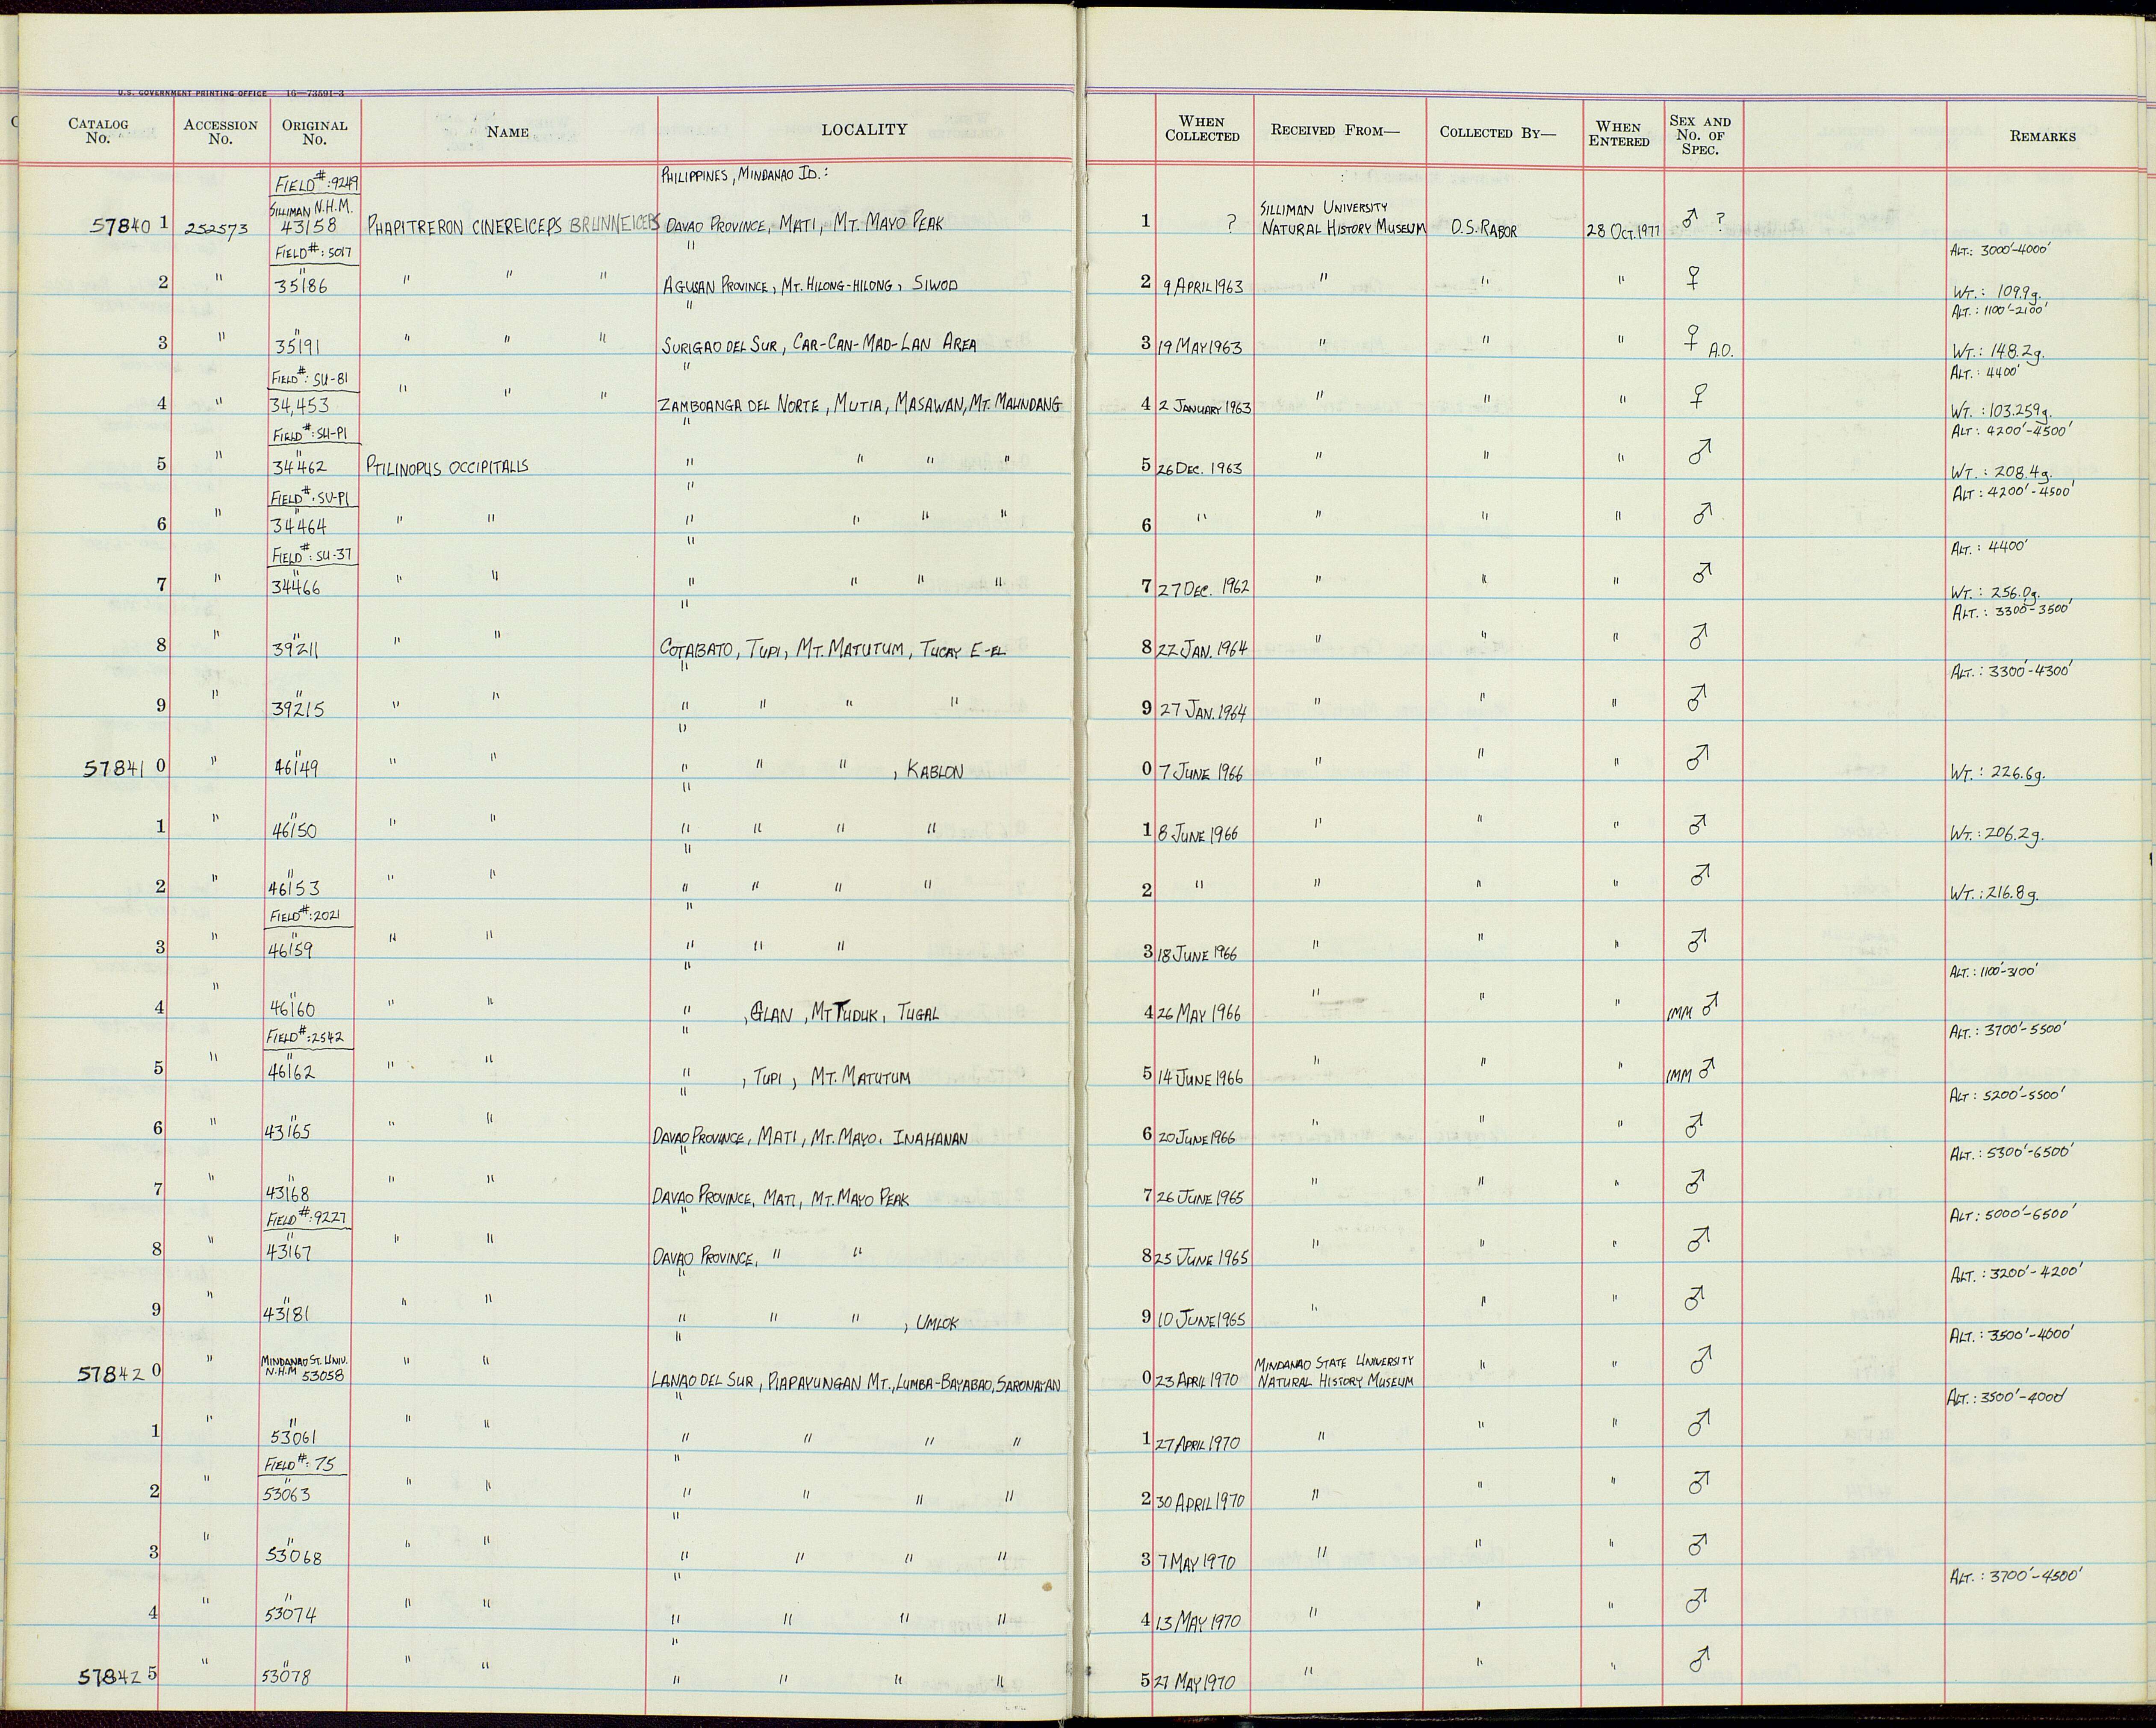 U.S. GOVERNMENT PRINTING OFFICE 16—73591-3
CATALOG No. ACCESSION No. ORIGINAL No. NAME LOCALITY WHEN COLLECTED RECEIVED FROM— COLLECTED BY— WHEN ENTERED SEX AND No. OF SPEC. REMARKS
FIELD#:9249 PHILIPPINES, MINDANAO ID.:
SILLIMAN N.H.M. SILLIMAN UNIVERSITY
57840 1 252573 43158 PHAPITRERON CINEREICEPS BRUNNEICEPS DAVAO PROVINCE, MATI, MT. MAYO PEAK 1 ? NATURAL HISTORY MUSEUM D.S. RABOR 28 OCT. 1977 ♂ ?
FIELD#: 5017 " ALT.: 3000'-4000'
2 " " 35186 " " " AGUSAN PROVINCE, MT. HILONG-HILONG, SIWOD 2 9 APRIL 1963 " " " ♀ WT.: 109.9g.
" ALT.: 1100'-2100'
3 " " 35191 " " " SURIGAO DEL SUR, CAR-CAN-MAD-LAN AREA 3 19 MAY 1963 " " " ♀ A.O. WT.: 148.2g.
FIELD#: SU-81 " ALT.: 4400'
4 " 34,453 " " " ZAMBOANGA DEL NORTE, MUTIA, MASAWAN, MT. MALINDANG 4 2 JANUARY 1963 " " " ♀ WT.: 103.259g.
FIELD#: SU-P1 " ALT: 4200'-4500'
5 " " 34462 PTILINOPUS OCCIPITALIS " " " " 5 26 DEC. 1963 " " " ♂ WT.: 208.4g.
FIELD#: SU-P1 " ALT: 4200'-4500'
6 " " 34464 " " " " " " 6 " " " " ♂
FIELD#: SU-37 " ALT.: 4400'
7 " " 34466 " " " " " " 7 27 DEC. 1962 " " " ♂ WT.: 256.0g.
" ALT.: 3300'-3500'
8 " " 39211 " " COTABATO, TUPI, MT. MATUTUM, TUCAY E-EL 8 22 JAN. 1964 " " " ♂
" ALT.: 3300'-4300'
9 " " 39215 " " " " " " 9 27 JAN. 1964 " " " ♂
"
57841 0 " " 46149 " " " " " , KABLON 0 7 JUNE 1966 " " " ♂ WT.: 226.6g.
"
1 " " 46150 " " " " " " 1 8 JUNE 1966 " " " ♂ WT.: 206.2g.
"
2 " " 46153 " " " " " " 2 " " " " ♂ WT.: 216.8g.
FIELD#: 2021 "
3 " " 46159 " " " " " 3 18 JUNE 1966 " " " ♂
" ALT.: 1100'-3100'
4 " " 46160 " " " , GLAN, MT TUDUK, TUGAL 4 26 MAY 1966 " " " IMM ♂
FIELD#: 2542 " ALT.: 3700'-5500'
5 " " 46162 " " " , TUPI, MT. MATUTUM 5 14 JUNE 1966 " " " IMM ♂
" ALT: 5200'-5500'
6 " " 43165 " " DAVAO PROVINCE, MATI, MT. MAYO, INAHANAN 6 20 JUNE 1966 " " " ♂
" ALT.: 5300'-6500'
7 " " 43168 " " DAVAO PROVINCE, MATI, MT. MAYO PEAK 7 26 JUNE 1965 " " " ♂
FIELD#: 9227 " ALT: 5000'-6500'
8 " " 43167 " " DAVAO PROVINCE, " " 8 25 JUNE 1965 " " " ♂
" ALT.: 3200'-4200'
9 " " 43181 " " " " " , UMLOK 9 10 JUNE 1965 " " " ♂
" ALT.: 3500'-4000'
MINDANAO ST. UNIV. MINDANAO STATE UNIVERSITY
57842 0 " N.H.M 53058 " " LANAO DEL SUR, PIAPAYUNGAN MT., LUMBA-BAYABAO, SARONAYAN 0 23 APRIL 1970 NATURAL HISTORY MUSEUM " " ♂
" ALT.: 3500'-4000'
1 " " 53061 " " " " " " 1 27 APRIL 1970 " " " ♂
FIELD#: 75 "
2 " " 53063 " " " " " " 2 30 APRIL 1970 " " " ♂
"
3 " " 53068 " " " " " " 3 7 MAY 1970 " " " ♂
" ALT.: 3700'-4500'
4 " " 53074 " " " " " " 4 13 MAY 1970 " " " ♂
"
57842 5 " " 53078 " " " " " " 5 27 MAY 1970 " " " ♂